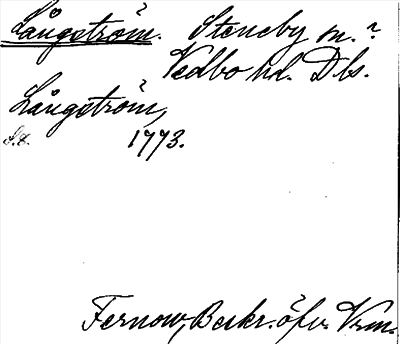 Långström. Steneby sn.?
Vedbo hd. Dls.
Långström,
S. 8. 1773.
Fernow, Beskr. öfver Vrm.